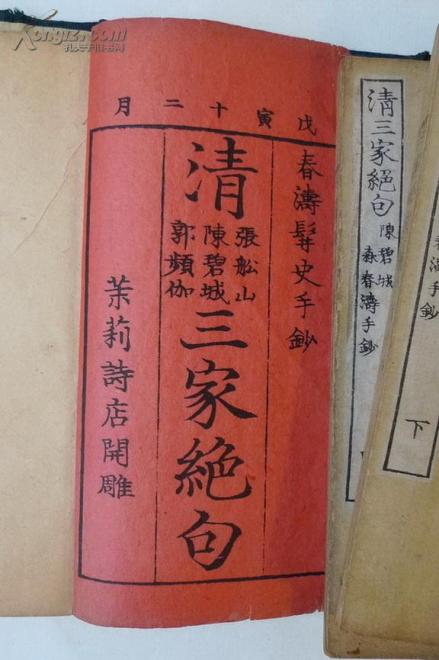 戊寅十二月
春濤髯史手鈔
清
張船山
陳碧城
郭頻伽
三家絕句
茉莉詩店開雕
清三家絕句
陳碧城
森春濤手鈔
下
春濤手鈔
Kongfz.com
孔夫子旧书网